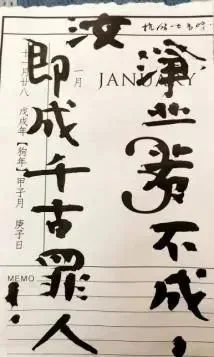 淨业若不成，
汝
即成千古罪人！
JANUARY
一月
十一月廿八
戊戌年【狗年】甲子月 庚子日
MEMO